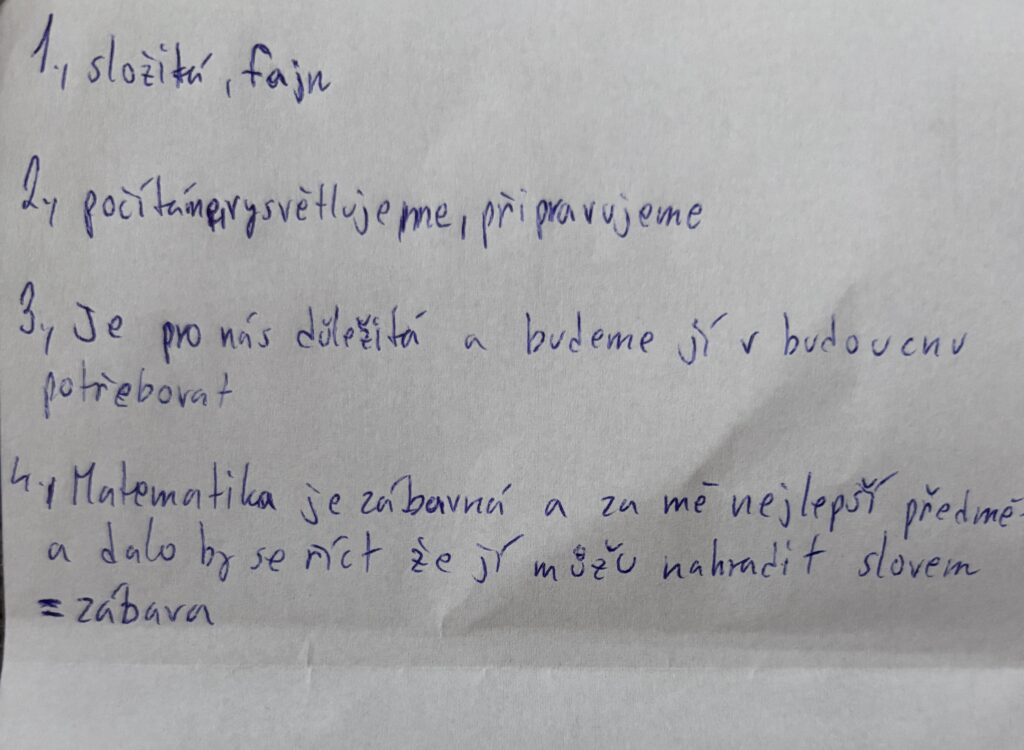 1., složitá, fajn
2., počítáme, vysvětlujeme, připravujeme
3., Je pro nás důležitá a budeme jí v budoucnu
potřebovat
4., Matematika je zábavná a za mě nejlepší předmě
a dalo by se říct že jí můžu nahradit slovem
= zábava